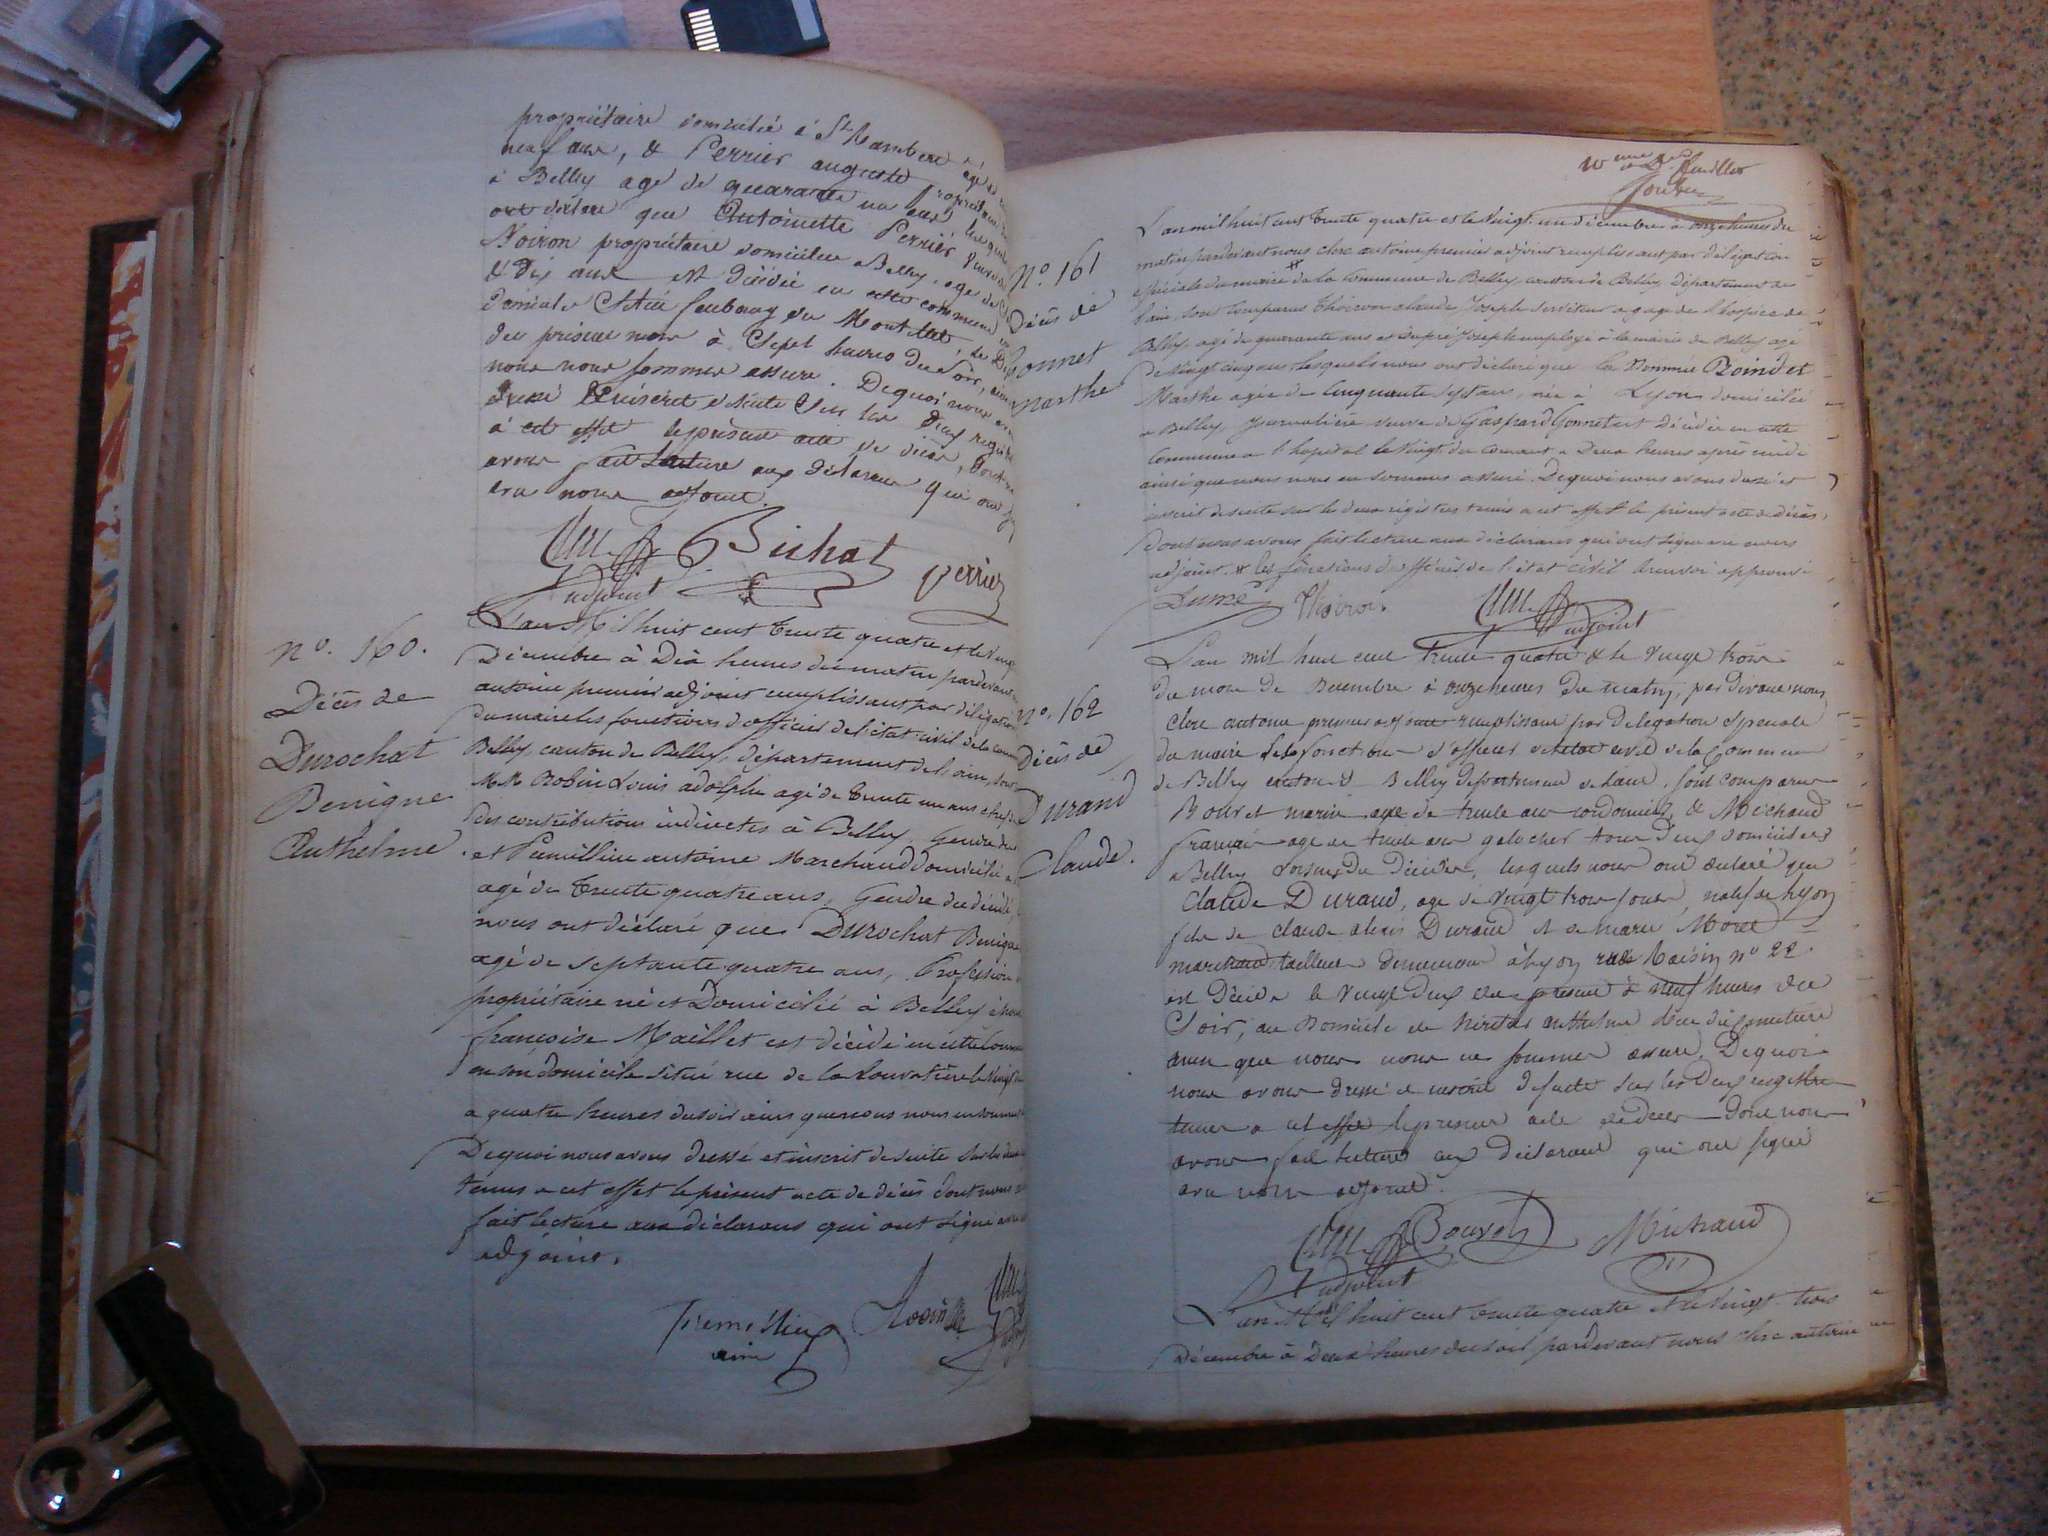 propriétaire domicilié à St Rambert
neuf ans, & Perrier auguste propriétaire
à Belley agé de quarante un ans lesquels
ont déclaré que Antoinette Perrier veuve
Noiron propriétaire domiciliée a Belley, agée de
& dix ans est décédée en cette commune
Domicile situé faubourg du
du présent mois à Sept heures du Soir,
nous nous sommes assuré. De quoi nous avons
dressé & inscrit de suite sur les deux registres
à cet effet le présent acte de décès, dont
avons fait lecture aux déclarans qui ont
avec nous adjoint.
Bichat
Perrier
adjoint
N°. 160.
Décès de
Durochat
Benigne
Anthelme.
L'an Mil huit cent trente quatre et le vingt
Décembre à Dix heures du matin pardevant
antoine premier adjoint remplissant par délégation
du maire les fonctions d'officier de l'état civil de la commune
Belley, canton de Belley, département de l'ain, sont
MM Robin Louis adolphe agé de trente un ans
des contributions indirectes à Belley Gendre du
et antoine Marchand domicilié
agé de trente quatre ans, Gendre du décédé
nous ont déclaré que Durochat Benigne
agé de septante quatre ans, Profession
propriétaire né et Domicilié à Belley époux
françoise Maillet est décédé en cette commune
en son domicile situé rue de la Louvatière le vingt
a quatre heures du soir ainsi que nous nous en sommes
De quoi nous avons dressé et inscrit de suite sur les deux
tenus a cet effet le présent acte de décès dont nous
fait lecture aux déclarans qui ont signé avec
adjoint.
Robin
10me & Dr feuillet
N°. 161
Décès de
Gonnet
Marthe
L'an mil huit cent trente quatre et le Vingt-un décembre à onze heures du
matin pardevant nous Clerc antoine premier adjoint remplissant par délégation
spéciale du maire # de la Commune de Belley canton de Belley, Département de
l'ain, sont comparus Thoiron claude Joseph serviteur a gage de l'hospice de
Belley, agé de quarante ans et Joseph employé à la mairie de Belley agé
de vingt cinq ans lesquels nous ont déclaré que la Nommée Poindet
Marthe agée de cinquante sept ans, née à Lyon domiciliée
a Belley, Journalière veuve de Gaspard Gonnet est décédée en cette
Commune a l'hopital le Vingt du Courant a Deux heures après midi
ainsi que nous nous en sommes assuré. De quoi nous avons dressé et
inscrit de suite sur les deux régistres tenus a cet effet le présent acte de décès,
Dont nous avons fait lecture aux déclarans qui ont signé avec nous
adjoint. # les fonctions d'officier de l'état civil Renvoi approuvé
Thoiron.
adjoint
N°. 162
Décès de
Durand
Claude.
L'an mil huit cent trente quatre & le vingt trois
du mois de Décembre à onze heures du matin, par devant nous
Clerc antoine premier adjoint remplissant par délégation Spéciale
du maire les fonctions d'officier de l'état civil de la Commune
de Belley canton de Belley département de l'ain, sont comparus
Bouvet marin agé de trente ans cordonnier, & Michaud
français agé de trente ans galocher tous deux domiciliés
a Belley voisins du Décédé, lesquels nous ont déclaré que
Claude Durand, agé de vingt trois jours, natif de Lyon
fils de claude alexis Durand & de marie Morel
marchand tailleur demeurant à Lyon rue Raisin n° 22.
est Décédé le vingt deux du présent à neuf heures du
Soir, au Domicile de anthelme
ainsi que nous nous en sommes assuré, De quoi
nous avons dressé & inscrit de suite sur les deux registres
tenus a cet effet le présent acte de décès dont nous
avons fait lecture aux déclarans qui ont signé
avec nous adjoint.
Bouvet Michaud
adjoint
L'an Mil huit cent trente quatre et le Vingt-trois
Décembre à Deux heures du soir pardevant nous Clerc antoine